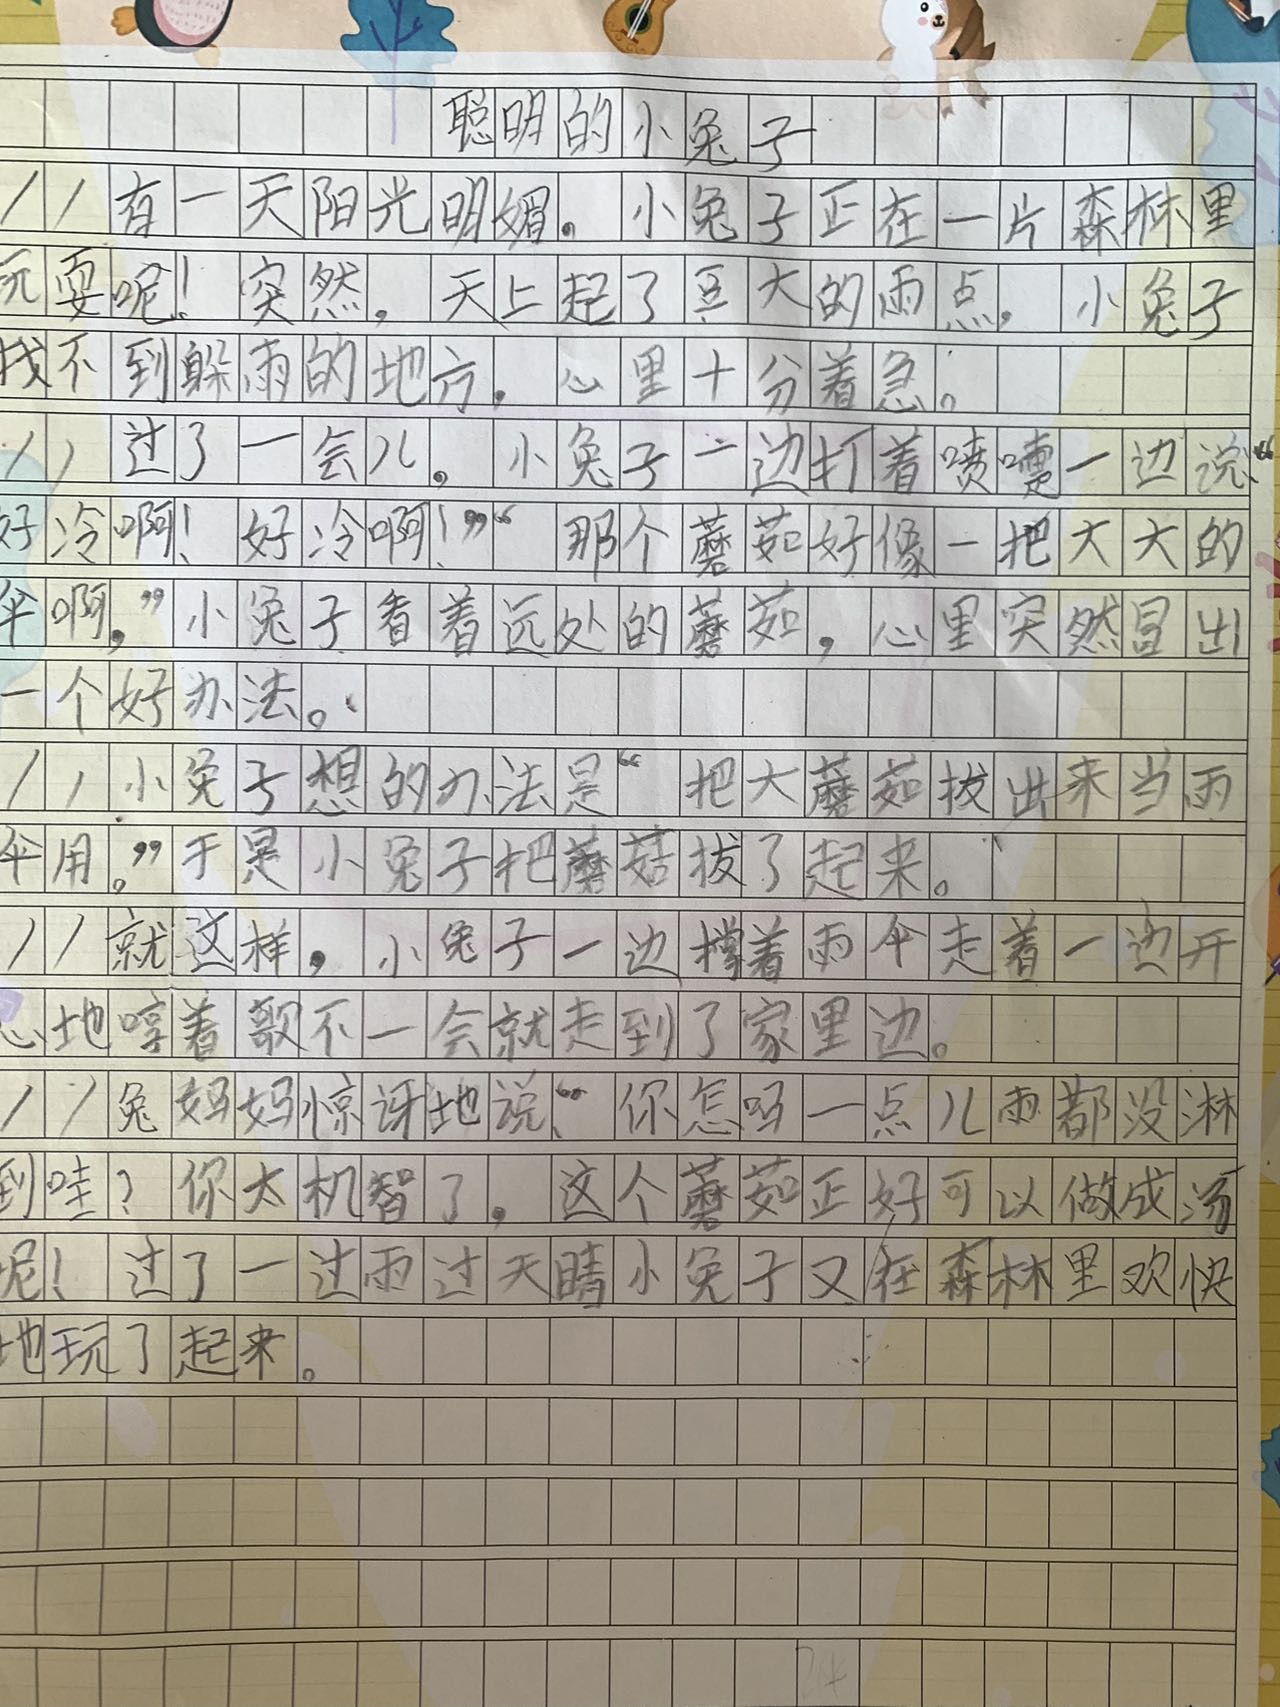 聪明的小兔子
有一天阳光明媚。小兔子正在一片森林里
玩耍呢！突然，天上起了豆大的雨点，小兔子
找不到躲雨的地方，心里十分着急。
过了一会儿，小兔子一边打着喷嚏一边说“
好冷啊！好冷啊！”“那个蘑茹好像一把大大的
伞啊，”小兔子看着远处的蘑茹，心里突然冒出
一个好办法。
小兔子想的办法是“把大蘑茹拔出来当雨
伞用。”于是小兔子把蘑菇拔了起来。
就这样，小兔子一边撑着雨伞走着一边开
心地哼着歌不一会就走到了家里边。
兔妈妈惊讶地说：“你怎吗一点儿雨都没淋
到哇？你太机智了，这个蘑茹正好可以做成汤
呢！过了一过雨过天晴小兔子又在森林里欢快
地玩了起来。